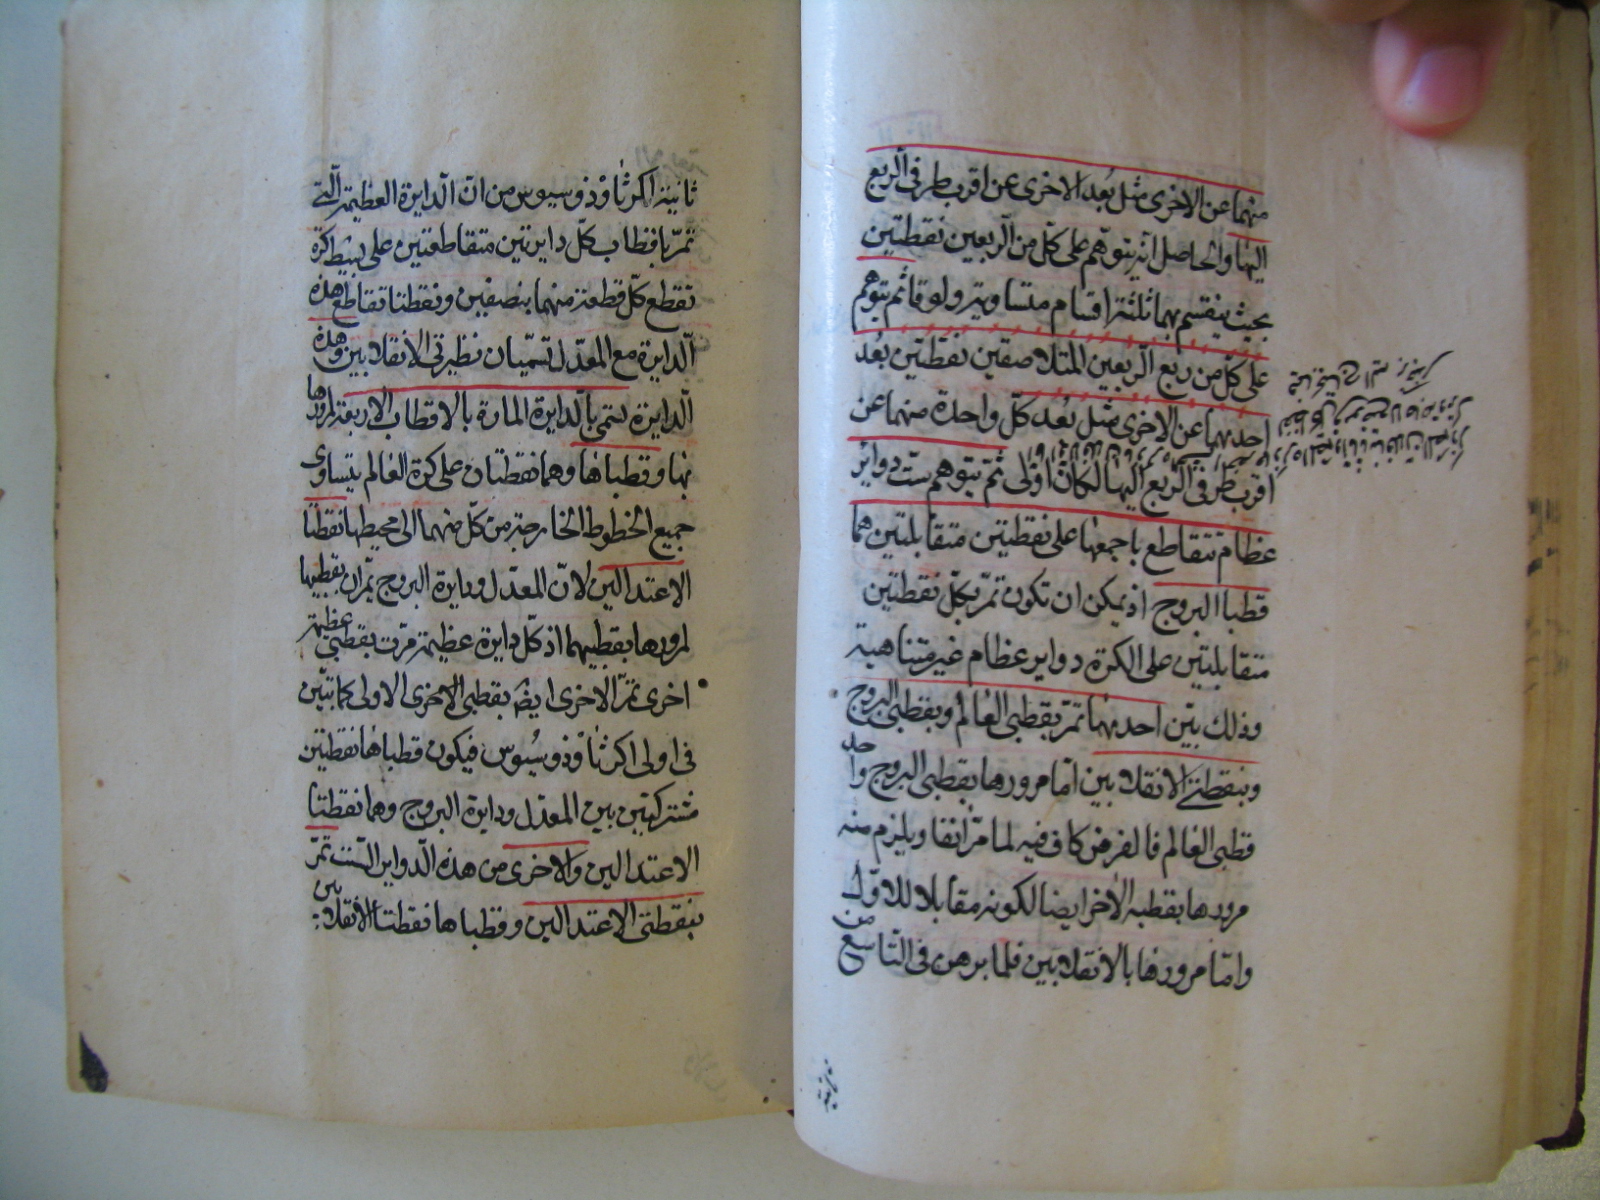 منهما عن الاخرى مثل بُعد الاخرى عن اقرب طرفى الربع
اليها والحاصل انه يتوهم على كل من الربعين نقطتين
بحيث ينقسم بهما ثلثة اقسام متساوية ولو قا ثم يتوهم
على كل من ربع الربعين المتلاصقين نقطتين بُعد
احديهما عن الاخرى مثل بُعد كل واحدة منهما عن
اقرب طرفى الربع اليها لكان اولى ثم يتوهم ست دواير
عظام تتقاطع باجمعها على نقطتين متقابلتين هما
قطبا البروج اذ يمكن ان تكون تمر بكل نقطتين
متقابلتين على الكرة دواير عظام غير متناهية
وذلك بيّن احديها تمر بقطبى العالم وبقطبى البروج
وبنقطتى الانقلابين امّا مرورها بقطبى البروج واحد
قطبى العالم فالفرض كاف فيه لما مرّ انفا ويلزم منه
مرورها بقطبه الاخر ايضا لكونه مقابلا للاوّل
وامّا مرورها بالانقلابين فلما برهن فى التاسع من
ثانية اكر ثاوذوسيوس من ان الدايرة العظيمة التى
تمرّ باقطاب كلّ دايرتين متقاطعتين على بسيط كرة
تقطع كلّ قطعة منهما بنصفين ونقطتا تقاطع هذه
الدايرة مع المعدّل تسمّيان نظيرتى الانقلابين وهذه
الدايرة تسمى بالدايرة المارة بالاقطاب الاربعة لمرورها
بها وقطباها وهما نقطتان على كرة العالم يتساوى
جميع الخطوط الخارجة من كلّ منهما الى محيطها نقطتا
الاعتدالين لانّ المعدّل ودايرة البروج تمرّان بقطبيها
لمرورها بقطبيهما اذ كلّ دايرة عظيمة مرّت بقطبى عظيمة
اخرى تمرّ الاخرى ايضا بقطبى الاخرى الاولى كما تبيّن
فى اولى اكر ثاوذوسيُوس فيكون قطباها نقطتين
مشتركتين بين المعدّل ودايرة البروج وهما نقطتا
الاعتدالين والاخرى من هذه الدواير الستّ تمرّ
بنقطتى الاعتدالين وقطباها نقطتا الانقلابين